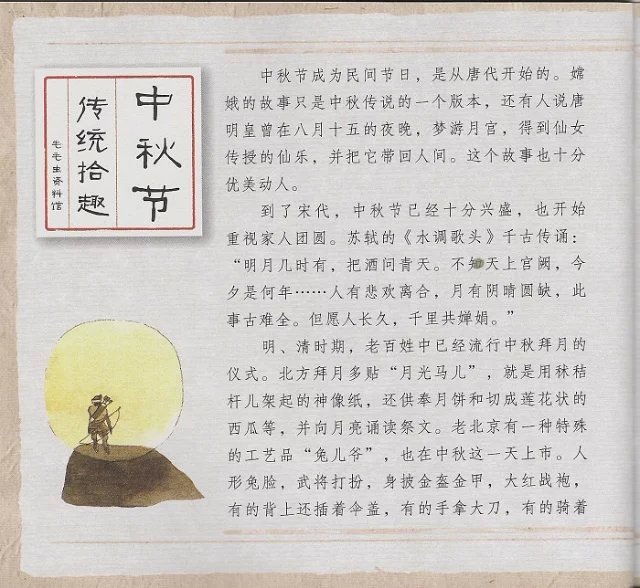 中秋节
传统拾趣
毛毛虫资料馆
中秋节成为民间节日，是从唐代开始的。嫦
娥的故事只是中秋传说的一个版本，还有人说唐
明皇曾在八月十五的夜晚，梦游月宫，得到仙女
传授的仙乐，并把它带回人间。这个故事也十分
优美动人。
到了宋代，中秋节已经十分兴盛，也开始
重视家人团圆。苏轼的《水调歌头》千古传诵：
“明月几时有，把酒问青天。不知天上宫阙，今
夕是何年……人有悲欢离合，月有阴晴圆缺，此
事古难全。但愿人长久，千里共婵娟。”
明、清时期，老百姓中已经流行中秋拜月的
仪式。北方拜月多贴“月光马儿”，就是用秫秸
杆儿架起的神像纸，还供奉月饼和切成莲花状的
西瓜等，并向月亮诵读祭文。老北京有一种特殊
的工艺品“兔儿爷”，也在中秋这一天上市。人
形兔脸，武将打扮，身披金盔金甲，大红战袍，
有的背上还插着伞盖，有的手拿大刀，有的骑着